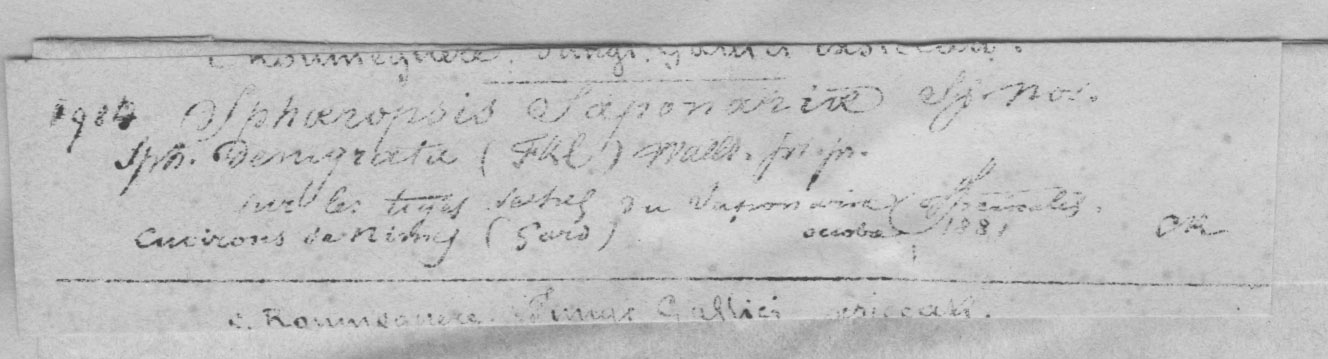 C. Roumeguere. Fungi Gallici exsiccati.
1984 Sphœropsis Saponariæ Sp. nov.
Sph. Denigrata (Fkl)
sur les tiges seches du Saponaria
Environs de Nimes (Gard) octobre 1881
C. Roumeguere. Fungi Gallici exsiccati.